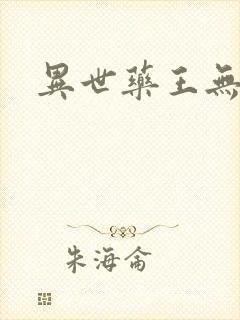 異世藥王無
朱海侖